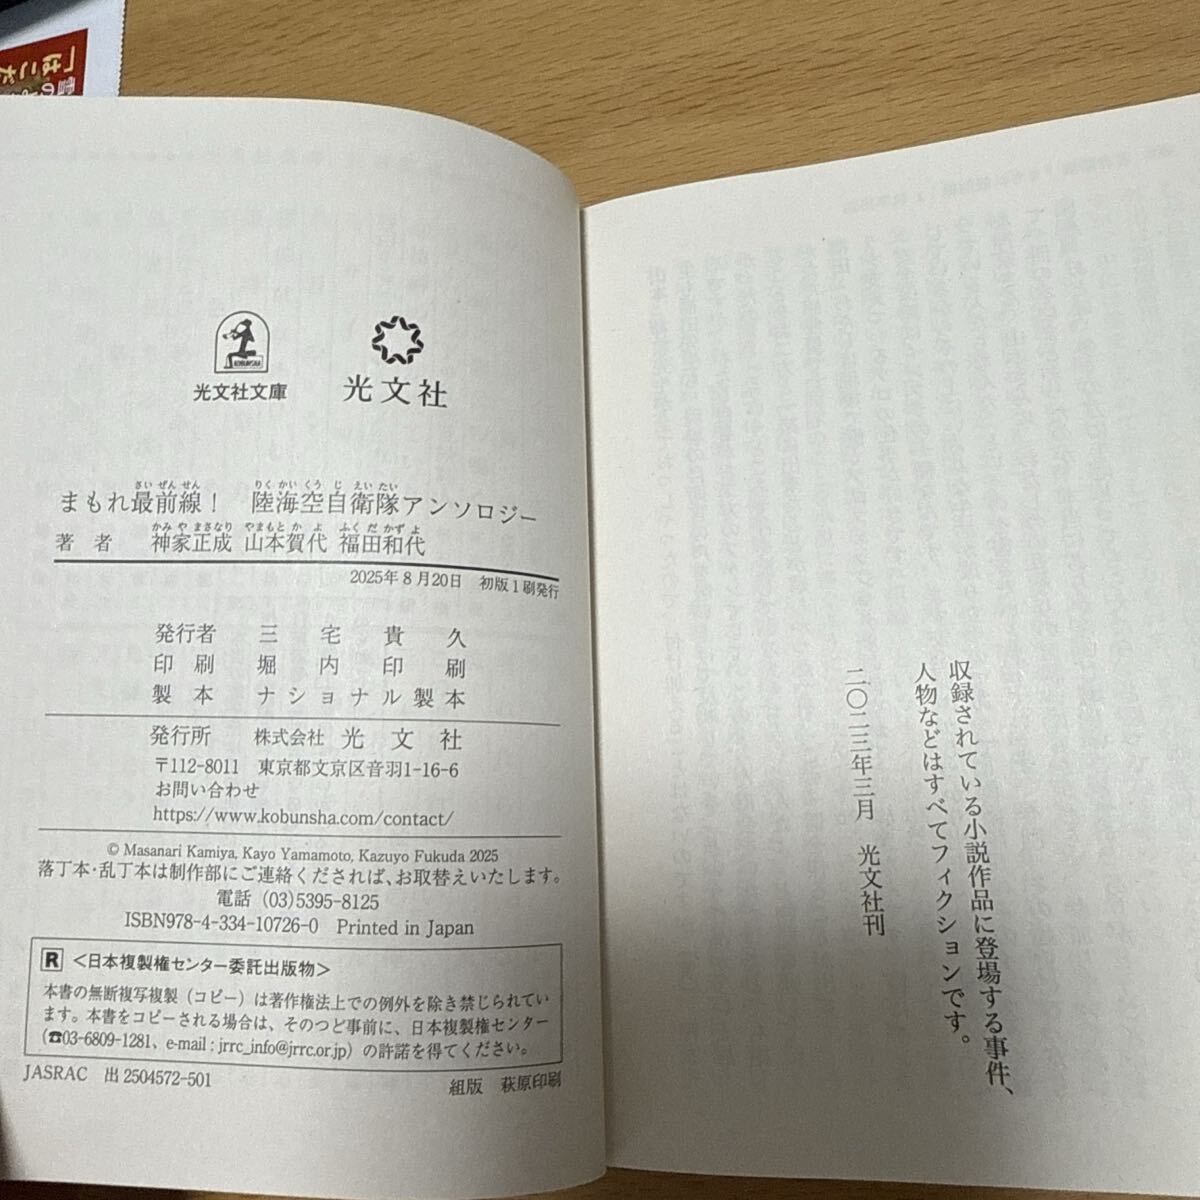 収録されている小説作品に登場する事件、
人物などはすべてフィクションです。
二〇二三年三月　光文社刊
KOBUNSHA
光文社文庫
光文社
さいぜんせん　りくかいくうじえいたい
まもれ最前線！　陸海空自衛隊アンソロジー
かみやまさなり　やまもとかよ　ふくだかずよ
著者　神家正成　山本賀代　福田和代
2025年8月20日　初版1刷発行
発行者　三宅貴久
印刷　堀内印刷
製本　ナショナル製本
発行所　株式会社　光文社
〒112-8011　東京都文京区音羽1-16-6
お問い合わせ
https://www.kobunsha.com/contact/
© Masanari Kamiya, Kayo Yamamoto, Kazuyo Fukuda 2025
落丁本・乱丁本は制作部にご連絡くだされば、お取替えいたします。
電話 (03)5395-8125
ISBN978-4-334-10726-0　Printed in Japan
R ＜日本複製権センター委託出版物＞
本書の無断複写複製（コピー）は著作権法上での例外を除き禁じられてい
ます。本書をコピーされる場合は、そのつど事前に、日本複製権センター
（☎03-6809-1281、e-mail : jrrc_info@jrrc.or.jp）の許諾を得てください。
JASRAC　出 2504572-501
組版　萩原印刷